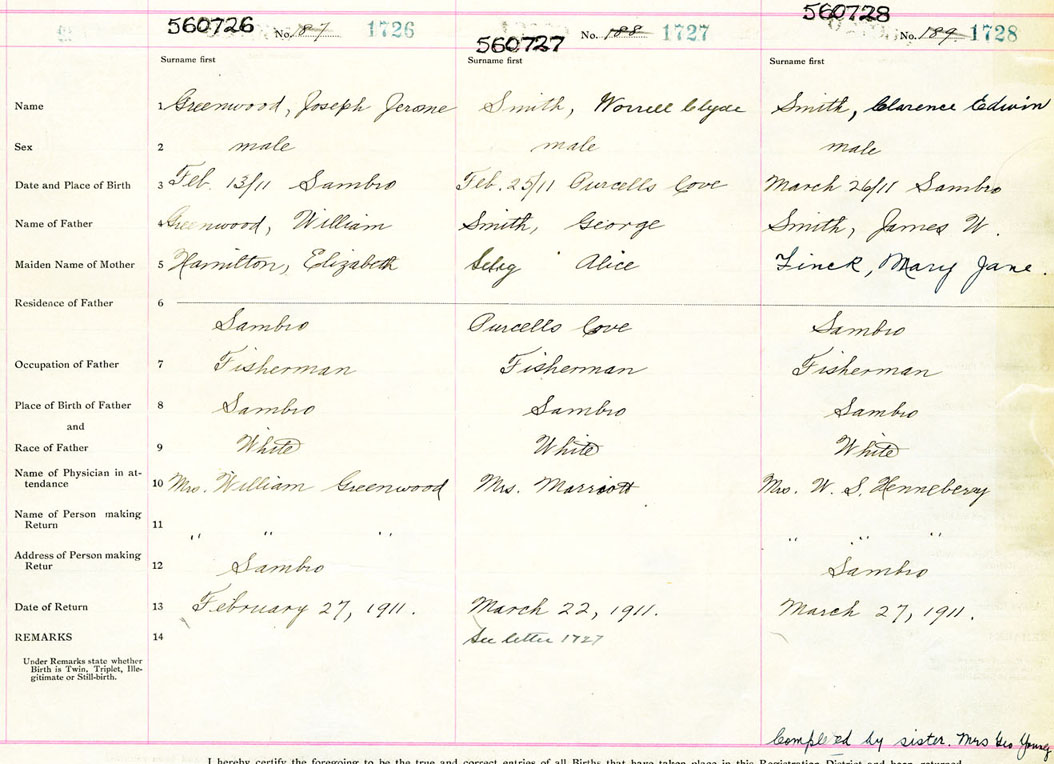 560726 No. 187 1726
560727 No. 188 1727
560728 No. 189 1728
Surname first Surname first Surname first
Name 1 Greenwood, Joseph Jerome Smith, Worrell Clyde Smith, Clarence Edwin
Sex 2 male male male
Date and Place of Birth 3 Feb. 13/11 Sambro Feb. 25/11 Purcells Cove March 26/11 Sambro
Name of Father 4 Greenwood, William Smith, George Smith, James W.
Maiden Name of Mother 5 Hamilton, Elizabeth Selig Alice Finck, Mary Jane.
Residence of Father 6
Sambro Purcells Cove Sambro
Occupation of Father 7 Fisherman Fisherman Fisherman
Place of Birth of Father 8 Sambro Sambro Sambro
and
Race of Father 9 White White White
Name of Physician in at-
tendance 10 Mrs. William Greenwood Mrs. Marriott Mrs. W. S. Henneberry
Name of Person making
Return 11 " " " " " "
Address of Person making
Retur 12 Sambro Sambro
Date of Return 13 February 27, 1911. March 22, 1911. March 27, 1911.
REMARKS 14 See letter 1727
Under Remarks state whether
Birth is Twin, Triplet, Ille-
gitimate or Still-birth.
Completed by sister. Mrs Geo Young
I hereby certify the foregoing to be the true and correct entries of all Births that have taken place in this Registration District and been returned